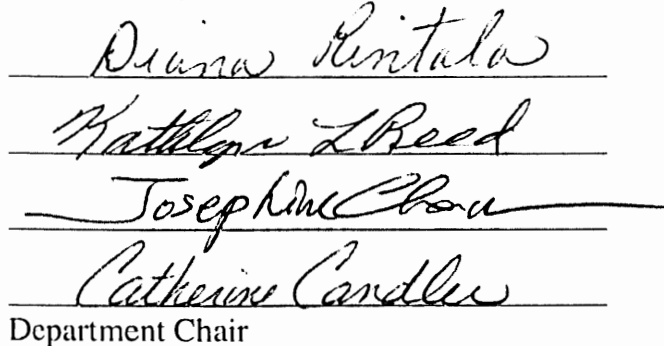 Diana Rintala
Kathlyn L Reed
Josephine Chan
Catherine Candler
Department Chair